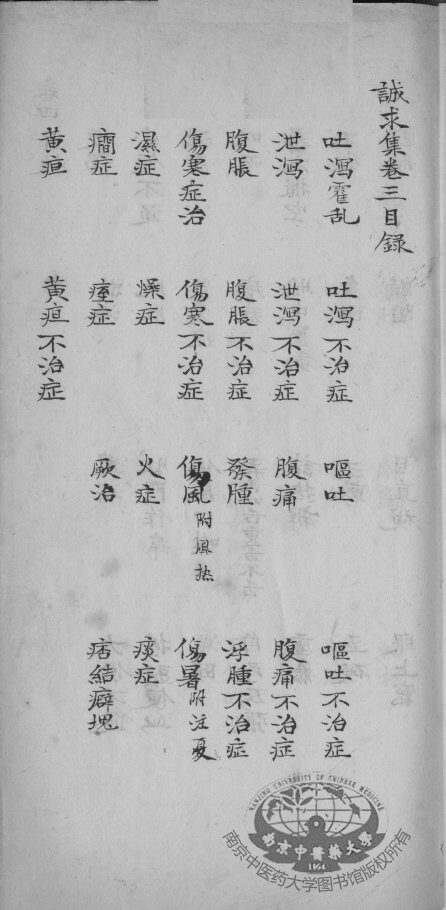 誠求集卷三目録
吐瀉霍乱 吐瀉不治症 嘔吐 嘔吐不治症
泄瀉 泄瀉不治症 腹痛 腹痛不治症
腹脹 腹脹不治症 發腫 浮腫不治症
傷寒症治 傷寒不治症 傷風附風热 傷暑附注夏
濕症 燥症 火症 痰症
癇症 痓症 厥治 痞結癖塊
黄疸 黄疸不治症
NANJING UNIVERSITY OF CHINESE MEDICINE
南京中醫藥大學
1954
南京中医药大学图书馆版权所有